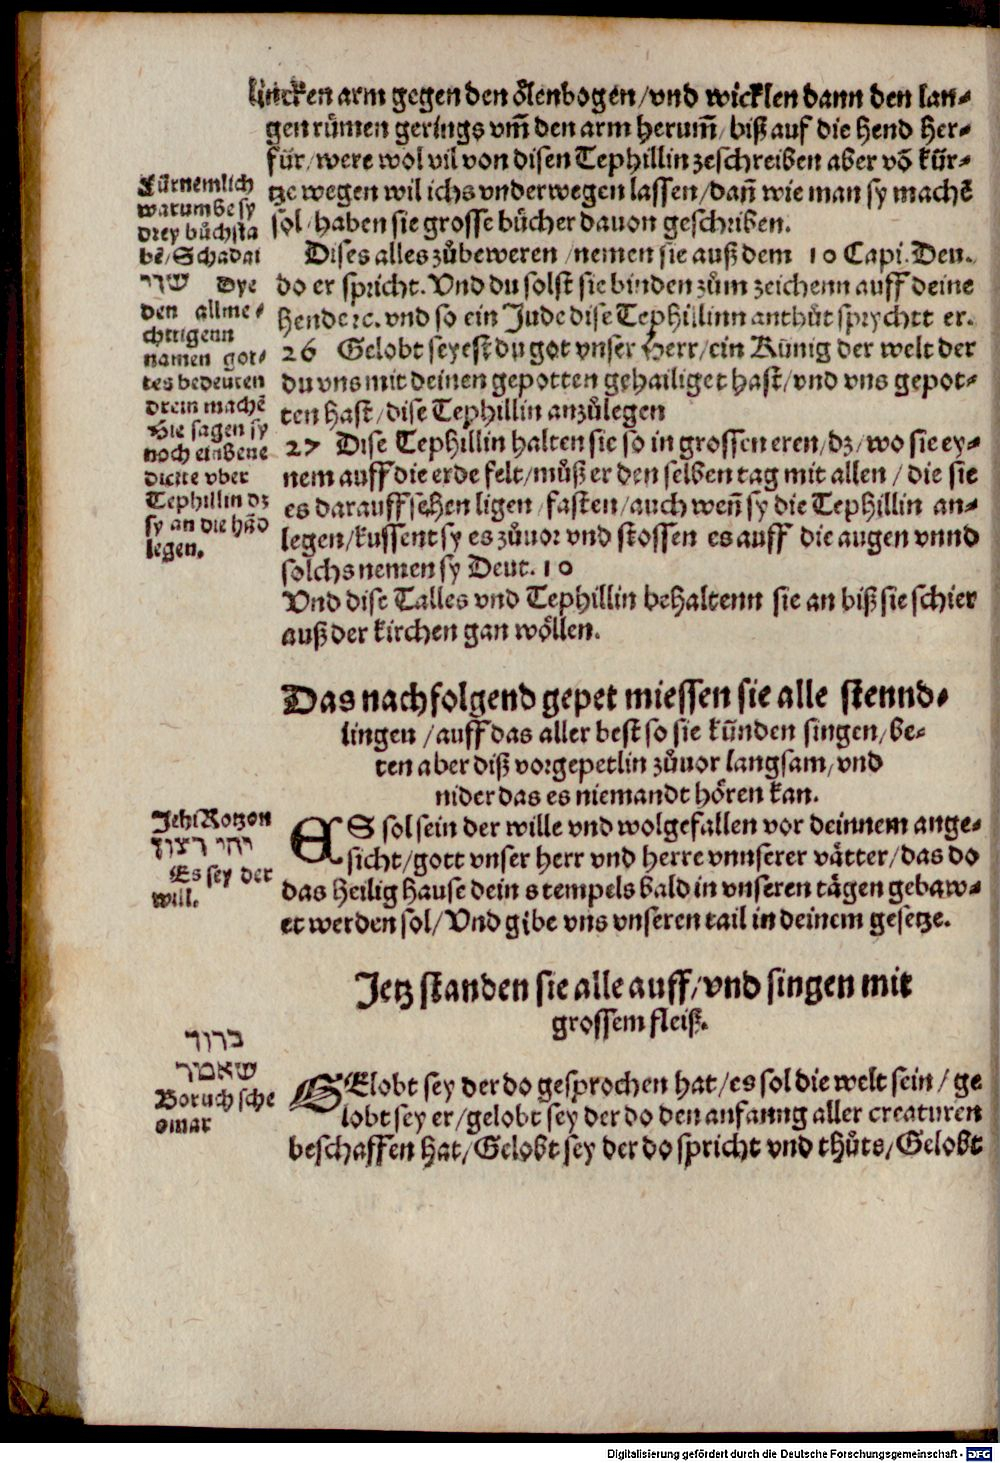 lincken arm gegen den ölenbogen/vnd wicklen dann den lan-
gen rümen gerings vm̃ den arm herum̃/biß auf die hend her-
für/were wol vil von disen Tephillin zeschreiben aber vō kür-
tze wegen wil ichs vnderwegen lassen/dañ wie man sy machē
sol/haben sie grosse bücher dauon geschriben.
Dises alles zůbeweren/nemen sie auß dem 10 Capi. Deu.
do er spricht. Vnd du solst sie binden zům zeichenn auff deine
hende ꝛc. vnd so ein Jude dise Tephillinn anthůt sprychtt er.
26 Gelobt seyest du got vnser Herr/ein Künig der welt der
du vns mit deinen gepotten gehailiget hast/vnd vns gepot-
ten hast/dise Tephillin anzůlegen
27 Dise Tephillin halten sie so in grossen eren/dz/wo sie ey-
nem auff die erde felt/můß er den selben tag mit allen/die sie
es darauff sehen ligen/fasten/auch weñ sy die Tephillin an-
legen/kussent sy es zůuor vnd stossen es auff die augen vnnd
solchs nemen sy Deut. 10
Vnd dise Talles vnd Tephillin behaltenn sie an biß sie schier
auß der kirchen gan wöllen.
Fürnemlich
warumbe sy
drey bůchsta
bē/Schadai
שדי Dye
den allme-
chttigenn
namen got-
tes bedeuten
drein machē
Hie sagen sy
noch ein bene
dicite vber
Tephillin dz
sy an die hñd
legen.
Das nachfolgend gepet miessen sie alle stennd-
lingen/auff das aller best so sie künden singen/be-
ten aber diß vorgepetlin zůuor langsam/vnd
nider das es niemandt hören kan.
Jehi Rotzon
יהי רצון
Es sey der
will.
ES sol sein der wille vnd wolgefallen vor deinnem ange-
sicht/gott vnser herr vnd herre vnnserer vätter/das do
das heilig hause dein s tempels bald in vnseren tägen gebaw-
et werden sol/Vnd gibe vns vnseren tail in deinem gesetze.
Jetz standen sie alle auff/vnd singen mit
grossem fleiß.
ברוך
שאמר
Boruch sche
omar
GElobt sey der do gesprochen hat/es sol die welt sein/ge
lobt sey er/gelobt sey der do den anfanng aller creaturen
beschaffen hat/Gelobt sey der do spricht vnd thůts/Gelobt
Digitalisierung gefördert durch die Deutsche Forschungsgemeinschaft - DFG